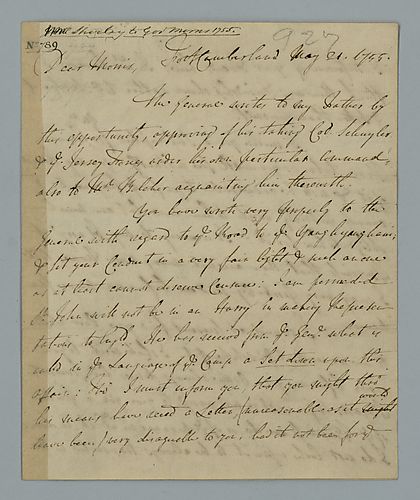 Wm. Shirley to Gov Morris 1755.
927
No. 789
Dear Morris, Fort Cumberland May 21. 1755.
The General writes to my Father by
this opportunity, approving of his taking Col. Schuyler
& ye Jersey Forces under his own particular Command,
also to Mr. Belcher acquainting him therewith.
You have wrote very properly to the
General with regard to ye Road to ye Yaughyaughani,
& set your Conduct in a very fair light & such an one
as at least cannot deserve Censure: I am persuaded
Sr. John will not be in an Hurry in making Represen
tations to Engld. He has received from ye Genl. what is
call'd in ye Language of ye Camp a Set down upon this
affair: tho' I must inform you, that you might thro'
his means have recd a Letter (unreasonable as it would
have been) very disagreable to you, had it not been for